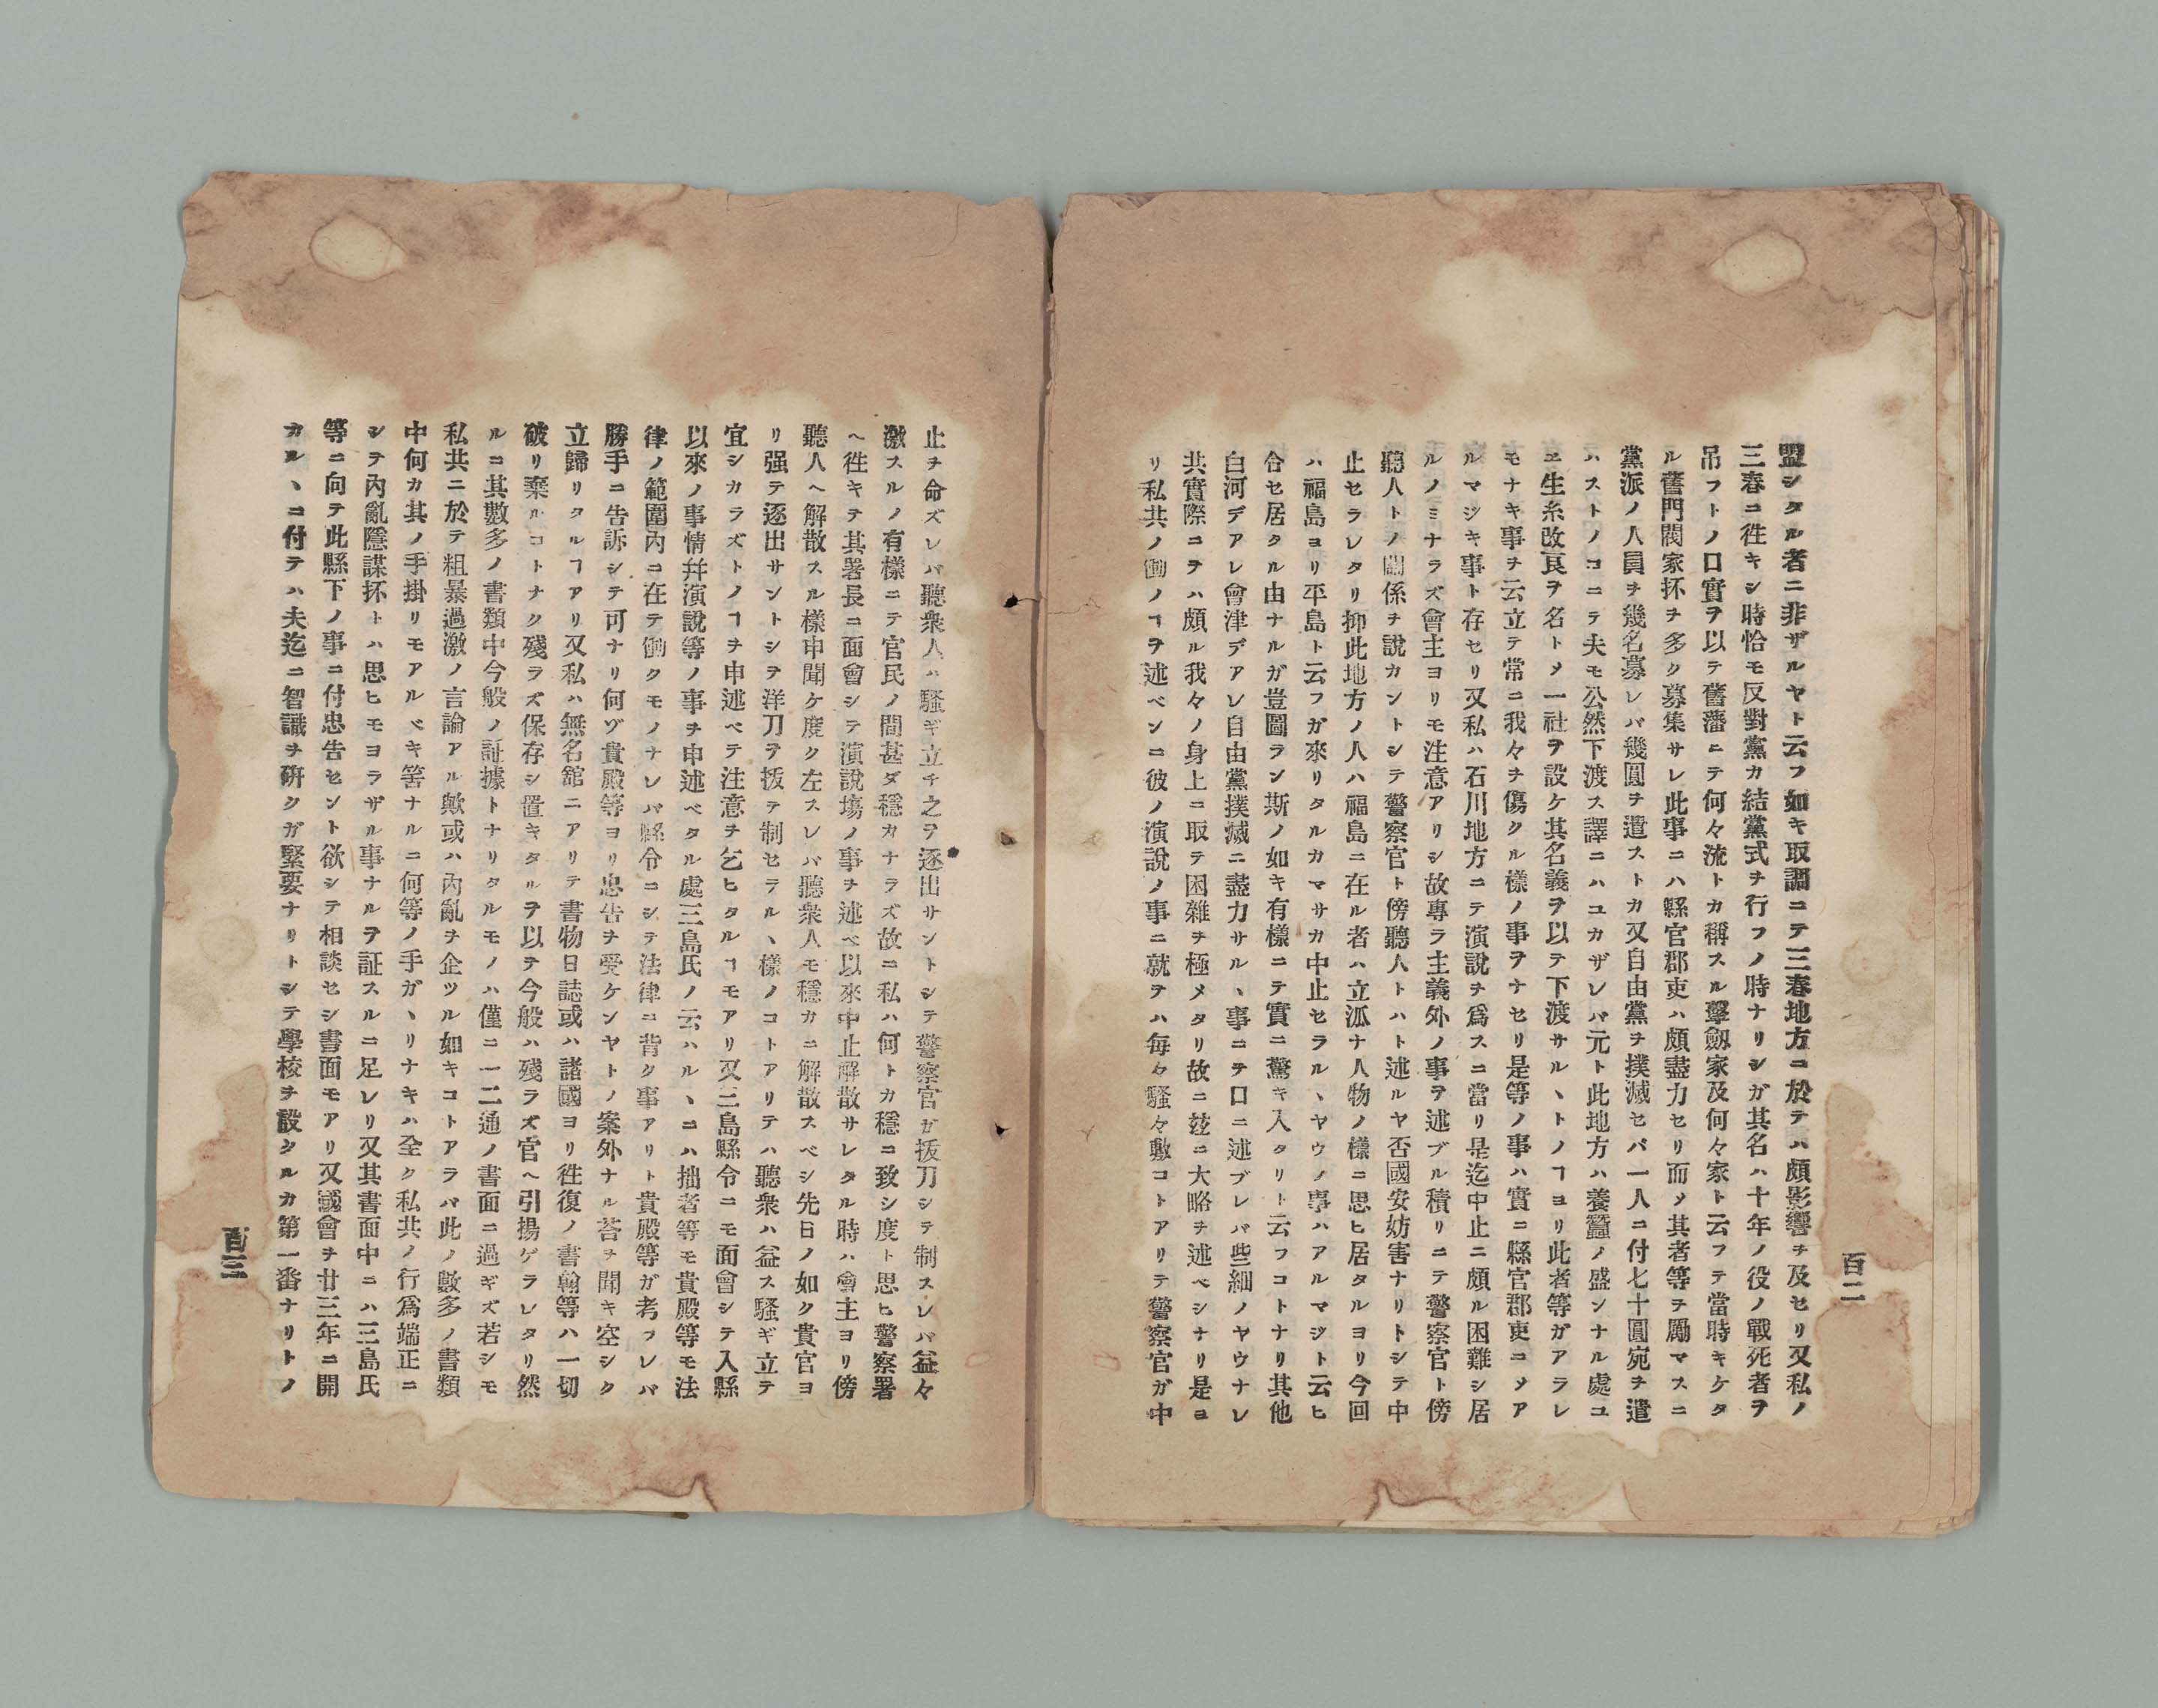 盟シタル者ニ非ザルヤト云フ如キ取調ニテ三春地方ニ於テハ頗影響ヲ及セリ又私ノ
三春ニ徃キシ時恰モ反對黨カ結黨式ヲ行フノ時ナリシガ其名ハ十年ノ役ノ戰死者ヲ
吊フトノ口實ヲ以テ舊藩ニテ何々流トカ稱スル擊劔家及何々家ト云フテ當時キケタ
ル舊門閥家抔ヲ多ク募集サレ此事ニハ縣官郡吏ハ頗盡力セリ而〆其者等ヲ勵マスニ
黨派ノ人員ヲ幾名募レバ幾圓ヲ遣ストカ又自由黨ヲ撲滅セバ一人ニ付七十圓宛ヲ遣
ハストノコニテ夫モ公然下渡ス譯ニハユカザレバ元ト此地方ハ養蠶ノ盛ンナル處ユ
ヱ生糸改良ヲ名ト〆一社ヲ設ケ其名義ヲ以テ下渡サル、トノヿヨリ此者等ガアラレ
モナキ事ヲ云立テ常ニ我々ヲ傷クル樣ノ事ヲナセリ是等ノ事ハ實ニ縣官郡吏ニ〆ア
ルマジキ事ト存セリ又私ハ石川地方ニテ演說ヲ爲スニ當リ是迄中止ニ頗ル困難シ居
ルノミナラズ會主ヨリモ注意アリシ故專ラ主義外ノ事ヲ述ブル積リニテ警察官ト傍
聽人トノ關係ヲ說カントシテ警察官ト傍聽人トハト述ルヤ否國安妨害ナリトシテ中
止セラレタリ抑此地方ノ人ハ福島ニ在ル者ハ立派ナ人物ノ樣ニ思ヒ居タルヨリ今回
ハ福島ヨリ平島ト云フガ來リタルカマサカ中止セラル、ヤウノ事ハアルマジト云ヒ
合セ居タル由ナルガ豈圖ラン斯ノ如キ有樣ニテ實ニ驚キ入タリト云フコトナリ其他
白河デアレ會津デアレ自由黨撲滅ニ盡力サル、事ニテ口ニ述ブレバ些細ノヤウナレ
共實際ニヲハ頗ル我々ノ身上ニ取テ困雜ヲ極メタリ故ニ玆ニ大略ヲ述ベシナリ是ヨ
リ私共ノ働ノヿヲ述ベンニ彼ノ演說ノ事ニ就ヲハ每々騷々敷コトアリテ警察官ガ中
百二
止ヲ命ズレバ聽衆人ハ騷ギ立チ之ヲ逐出サントシテ警察官ガ拔刀シテ制スレバ益々
激スルノ有樣ニテ官民ノ間甚ダ穩カナラズ故ニ私ハ何トカ穩ニ致シ度ト思ヒ警察署
ヘ徃キテ其署長ニ面會シテ演說塲ノ事ヲ述ベ以來中止解散サレタル時ハ會主ヨリ傍
聽人ヘ解散スル樣申聞ケ度ク左スレバ聽衆人モ穩カニ解散スベシ先日ノ如ク貴官ヨ
リ强テ逐出サントシテ洋刀ヲ拔テ制セラル、樣ノコトアリテハ聽衆ハ益ス騷ギ立テ
宜シカラズトノヿヲ申述ベテ注意ヲ乞ヒタルヿモアリ又三島縣令ニモ面會シテ入縣
以來ノ事情幷演說等ノ事ヲ申述ベタル處三島氏ノ云ハル、ニハ拙者等モ貴殿等モ法
律ノ範圍內ニ在テ働クモノナレバ縣令ニシテ法律ニ背ク事アリト貴殿等ガ考フレバ
勝手ニ告訴シテ可ナリ何ヅ貴殿等ヨリ忠告ヲ受ケンヤトノ案外ナル荅ヲ聞キ空シク
立歸リタルヿアリ又私ハ無名舘ニアリテ書物日誌或ハ諸國ヨリ徃復ノ書翰等ハ一切
破リ棄ルコトナク殘ラズ保存シ置キタルヲ以テ今般ハ殘ラズ官ヘ引揚ゲラレタリ然
ルニ其數多ノ書類中今般ノ証據トナリタルモノハ僅ニ一二通ノ書面ニ過ギズ若シモ
私共ニ於テ粗暴過激ノ言論アル歟或ハ內亂ヲ企ツル如キコトアラバ此ノ數多ノ書類
中何カ其ノ手掛リモアルベキ筈ナルニ何等ノ手ガ、リナキハ全ク私共ノ行爲端正ニ
シテ內亂隱謀抔トハ思ヒモヨラザル事ナルヲ証スルニ足レリ又其書面中ニハ三島氏
等ニ向テ此縣下ノ事ニ付忠告セント欲シテ相談セシ書面モアリ又國會ヲ廿三年ニ開
カル、ニ付テハ夫迄ニ智識ヲ硏クガ緊要ナリトシテ學校ヲ設クルカ第一番ナリトノ
百三